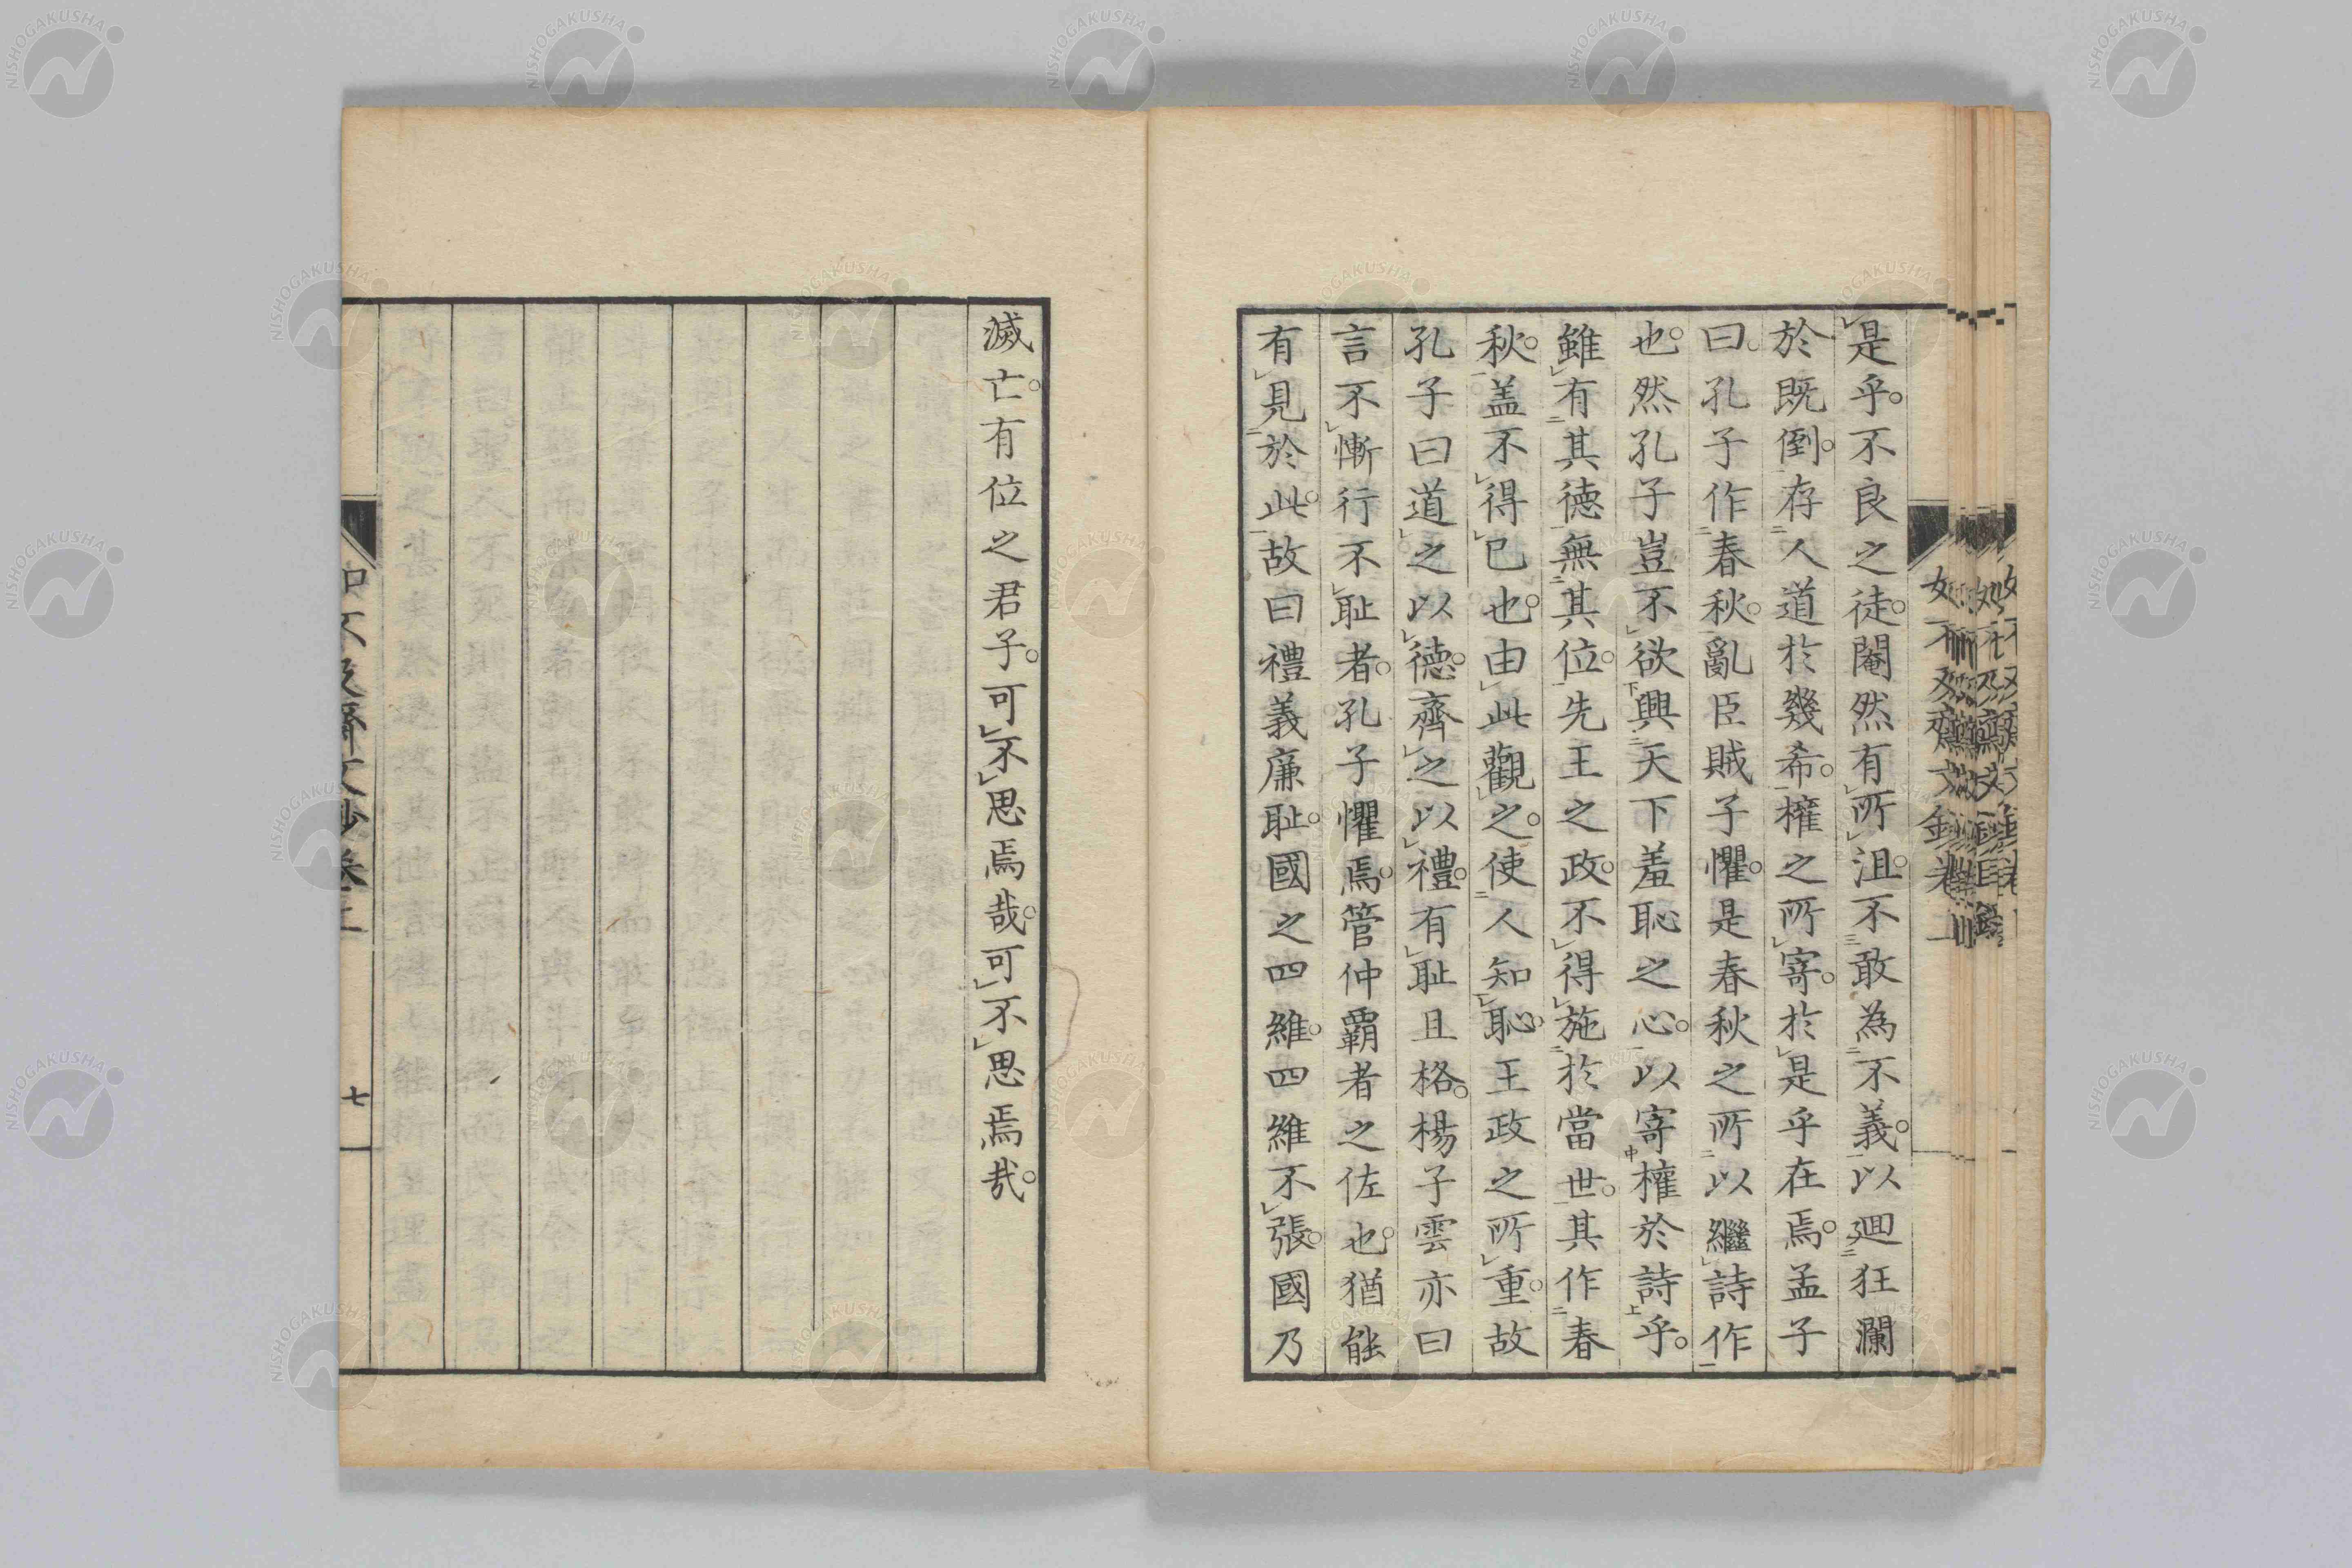 是乎。不良之徒。闇然有所沮。不敢為不義。以廻狂瀾
於既倒。存人道於幾希。権之所寄。於是乎在焉。孟子
曰。孔子作春秋。亂臣賊子懼。是春秋之所以繼詩作
也。然孔子豈不欲興天下羞恥之心。以寄権於詩乎。
雖有其德無其位。先王之政。不得施於當世。其作春
秋。盖不得已也。由此觀之。使人知恥。王政之所重。故
孔子曰道之以德。齊之以禮。有耻且格。楊子雲亦曰
言不慚行不耻者。孔子懼焉。管仲覇者之佐也。猶能
有見於此。故曰禮義廉耻。國之四維。四維不張。國乃
滅亡。有位之君子。可不思焉哉。可不思焉哉。
七
NISHOGAKUSHA